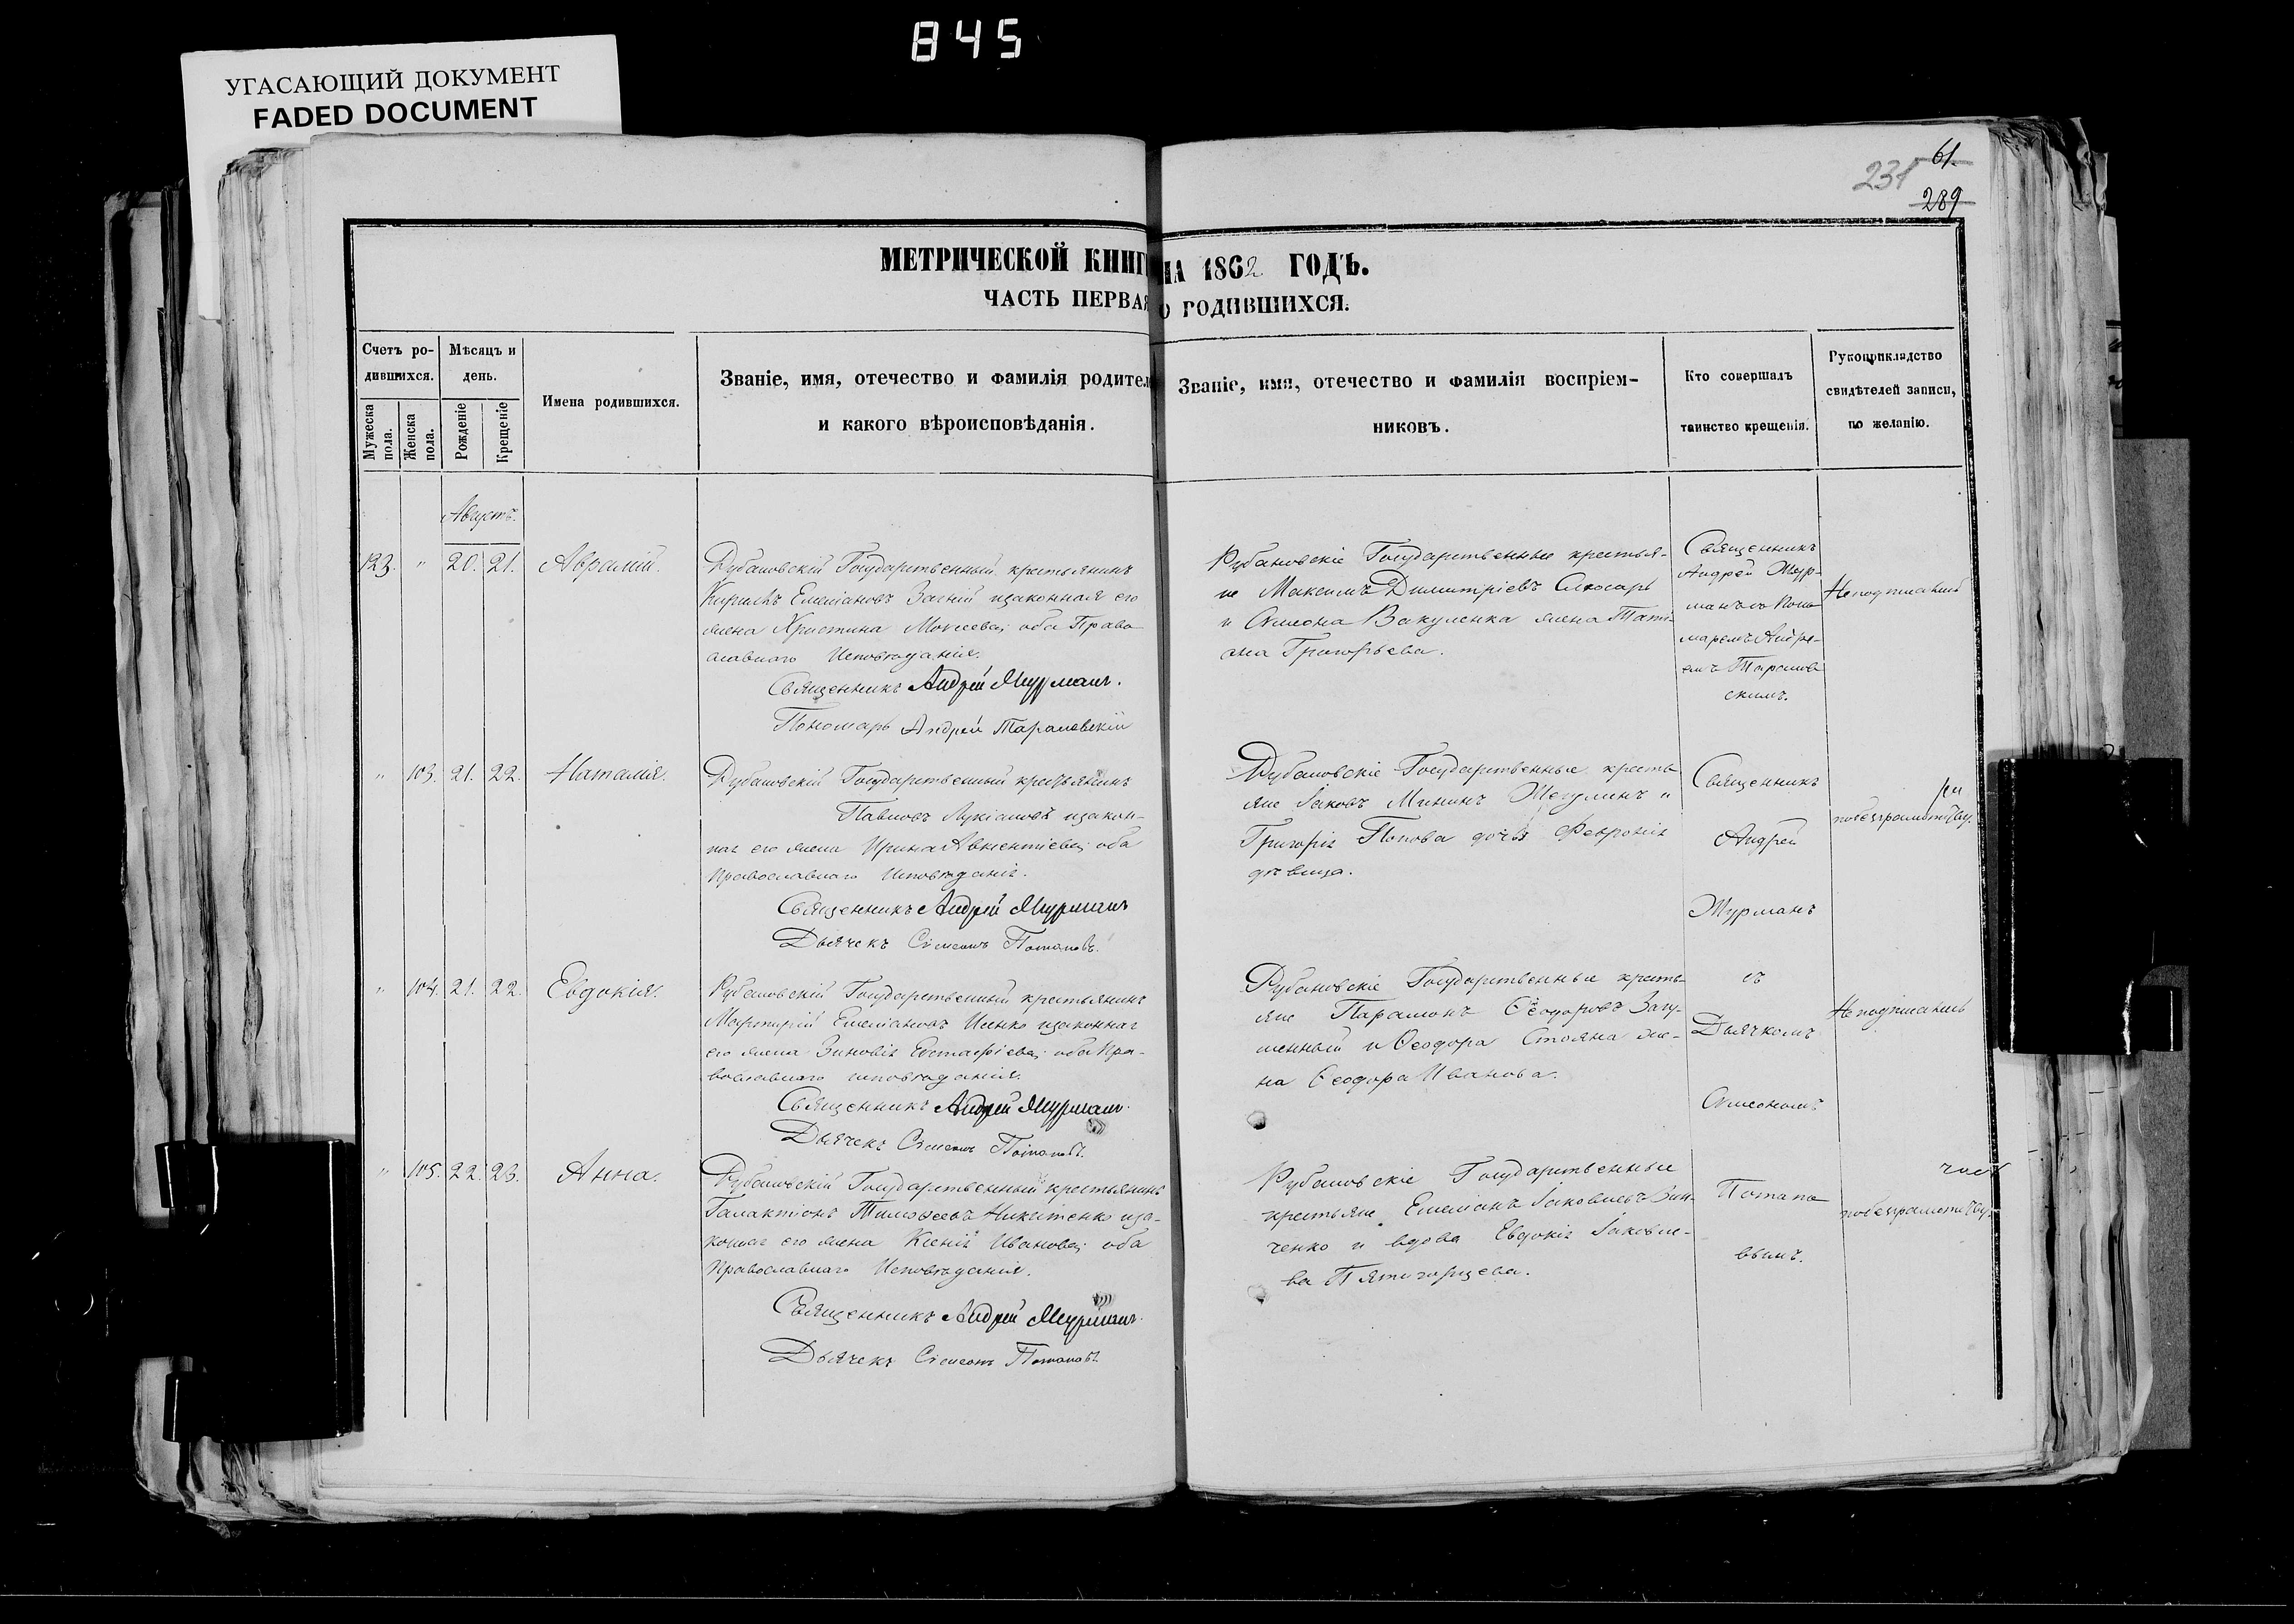 845
УГАСАЮЩИЙ ДОКУМЕНТ
FADED DOCUMENT
61.
231
289
МЕТРИЧЕСКОЙ КНИГ НА 1862 ГОДЪ.
ЧАСТЬ ПЕРВАЯ О РОДИВШИХСЯ.
Счетъ ро-
дившихся.
Мужеска пола.
Женска пола.
Мѣсяцъ и
день.
Рожденіе
Крещеніе
Имена родившихся.
Званіе, имя, отечество и фамилія родител
и какого вѣроисповѣданія.
Званіе, имя, отечество и фамилія воспріем-
никовъ.
Кто совершалъ
таинство крещенія.
Рукоприкладство
свидѣтелей записи,
по желанію.
Августъ.
123. " 20. 21. Аврамій.
Рубановскій Государственный крестьянинъ
Кириллъ Емеліановъ изаконная его
жена Христина Моисеева, оба Право-
славнаго Исповѣданія.
Священникъ Андрей Мурманъ.
Пономарь Андрей Тарановскій
Рубановскіе Государственные крестья-
не Максимъ Димитріевъ Слюсарь
и Симеона Вакуленка жена Тати-
ана Григорьева.
Священникъ
Андрей Мур-
манъ съ Поно-
маремъ Андре-
емъ Таранов-
скимъ.
Неподписались
" 103. 21. 22. Наталія.
Рубановскій Государственный крестьянинъ
Павловъ Лукіановъ изакон-
ная его жена Ирина Авксентіева, оба
Православнаго Исповѣданія.
Священникъ Андрей Мурманъ
Дьячекъ Сімеонъ Потаповъ.
Рубановскіе Государственные кресть-
яне Іаковъ Мининъ и
Григорія Попова дочь Февронія
дѣвица.
Священникъ
Андрей
Мурманъ
съ
Дьячкомъ
Симеономъ
Потапо-
вымъ.
" 104. 21. 22. Евдокія.
Рубановскій Государственный крестьянинъ
Мартирій Емеліановъ изаконная
его жена Зиновія Евстафіева, оба Пра-
вославнаго исповѣданія.
Священникъ Андрей Мурманъ.
Дьячекъ Сімеонъ Потаповъ.
Рубановскіе Государственные кресть-
яне Парамонъ Ѳеодоровъ
и Ѳеодора Стояна же-
на Ѳеодора Иванова.
Неподписались
" 105. 22. 23. Анна.
Рубановскій Государственный крестьянинъ
Галактіонъ Тимоѳеевъ Никитенко иза-
конная его жена Ксенія Иванова, оба
Православнаго Исповѣданія.
Священникъ Андрей Мурманъ.
Дьячекъ Сімеонъ Потаповъ.
Рубановскіе Государственные
крестьяне Емеліанъ Іаковлевъ Зин-
ченко и вдова Евдокія Іаковле-
ва Пятигорцева.